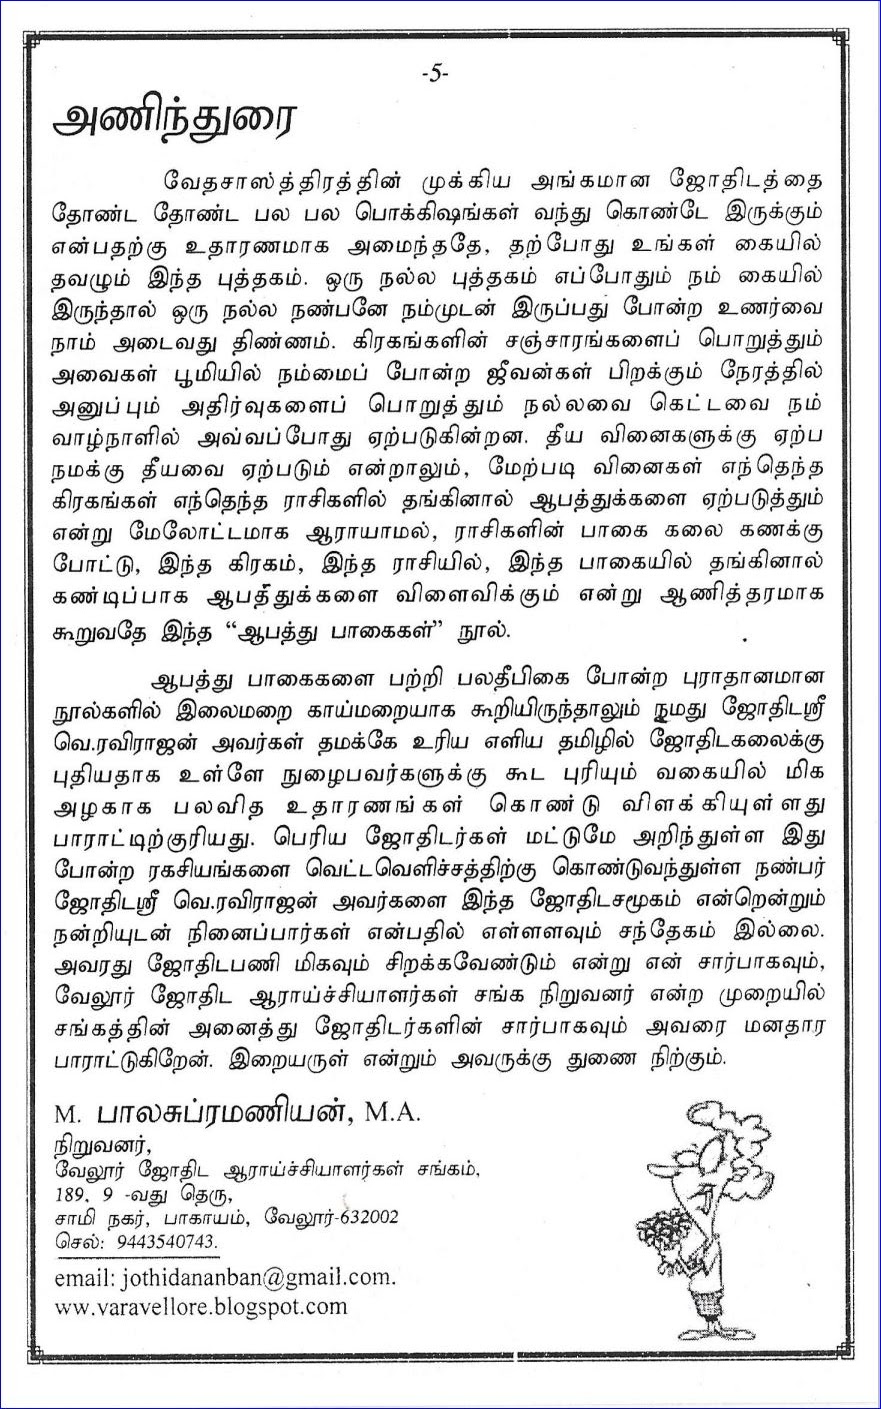 -5-
அணிந்துரை
வேதசாஸ்த்திரத்தின் முக்கிய அங்கமான ஜோதிடத்தை
தோண்ட தோண்ட பல பல பொக்கிஷங்கள் வந்து கொண்டே இருக்கும்
என்பதற்கு உதாரணமாக அமைந்ததே, தற்போது உங்கள் கையில்
தவழும் இந்த புத்தகம். ஒரு நல்ல புத்தகம் எப்போதும் நம் கையில்
இருந்தால் ஒரு நல்ல நண்பனே நம்முடன் இருப்பது போன்ற உணர்வை
நாம் அடைவது திண்ணம். கிரகங்களின் சஞ்சாரங்களைப் பொறுத்தும்
அவைகள் பூமியில் நம்மைப் போன்ற ஜீவன்கள் பிறக்கும் நேரத்தில்
அனுப்பும் அதிர்வுகளைப் பொறுத்தும் நல்லவை கெட்டவை நம்
வாழ்நாளில் அவ்வப்போது ஏற்படுகின்றன. தீய வினைகளுக்கு ஏற்ப
நமக்கு தீயவை ஏற்படும் என்றாலும், மேற்படி வினைகள் எந்தெந்த
கிரகங்கள் எந்தெந்த ராசிகளில் தங்கினால் ஆபத்துக்களை ஏற்படுத்தும்
என்று மேலோட்டமாக ஆராயாமல், ராசிகளின் பாகை கலை கணக்கு
போட்டு, இந்த கிரகம், இந்த ராசியில், இந்த பாகையில் தங்கினால்
கண்டிப்பாக ஆபத்துக்களை விளைவிக்கும் என்று ஆணித்தரமாக
கூறுவதே இந்த “ஆபத்து பாகைகள்” நூல்.
ஆபத்து பாகைகளை பற்றி பலதீபிகை போன்ற புராதானமான
நூல்களில் இலைமறை காய்மறையாக கூறியிருந்தாலும் நமது ஜோதிடஸ்ரீ
வெ.ரவிராஜன் அவர்கள் தமக்கே உரிய எளிய தமிழில் ஜோதிடகலைக்கு
புதியதாக உள்ளே நுழைபவர்களுக்கு கூட புரியும் வகையில் மிக
அழகாக பலவித உதாரணங்கள் கொண்டு விளக்கியுள்ளது
பாராட்டிற்குரியது. பெரிய ஜோதிடர்கள் மட்டுமே அறிந்துள்ள இது
போன்ற ரகசியங்களை வெட்டவெளிச்சத்திற்கு கொண்டுவந்துள்ள நண்பர்
ஜோதிடஸ்ரீ வெ.ரவிராஜன் அவர்களை இந்த ஜோதிடசமூகம் என்றென்றும்
நன்றியுடன் நினைப்பார்கள் என்பதில் எள்ளளவும் சந்தேகம் இல்லை.
அவரது ஜோதிடபணி மிகவும் சிறக்கவேண்டும் என்று என் சார்பாகவும்,
வேலூர் ஜோதிட ஆராய்ச்சியாளர்கள் சங்க நிறுவனர் என்ற முறையில்
சங்கத்தின் அனைத்து ஜோதிடர்களின் சார்பாகவும் அவரை மனதார
பாராட்டுகிறேன். இறையருள் என்றும் அவருக்கு துணை நிற்கும்.
M. பாலசுப்ரமணியன், M.A.
நிறுவனர்,
வேலூர் ஜோதிட ஆராய்ச்சியாளர்கள் சங்கம்,
189, 9 -வது தெரு,
சாமி நகர், பாகாயம், வேலூர்-632002
செல்: 9443540743.
email: jothidananban@gmail.com.
ww.varavellore.blogspot.com